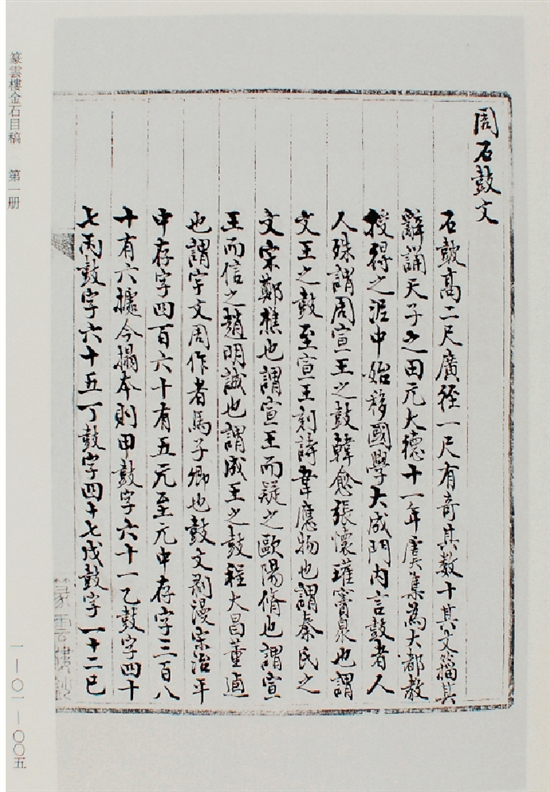 周石鼓文
石鼓高二尺廣徑一尺有奇其數十其文籀其
辭誦天子之田元大德十一年虞集爲大都教
授得之泥中始移國學大成門內言鼓者人
人殊謂周宣王之鼓韓愈張懷瓘竇臮也謂
文王之鼓至宣王刻詩韋應物也謂秦氏之
文宋鄭樵也謂宣王而疑之歐陽脩也謂宣
王而信之趙明誠也謂成王之鼓程大昌董逌
也謂宇文周作者馬子卿也鼓文剥漫宋治平
中存字四百六十有五元至元中存字三百八
十有六據今搨本則甲鼓字六十一乙鼓字四十
七丙鼓字六十五丁鼓字四十七戊鼓字一十二巳
篆雲樓金石目稿 第一册
一—〇一—〇〇五